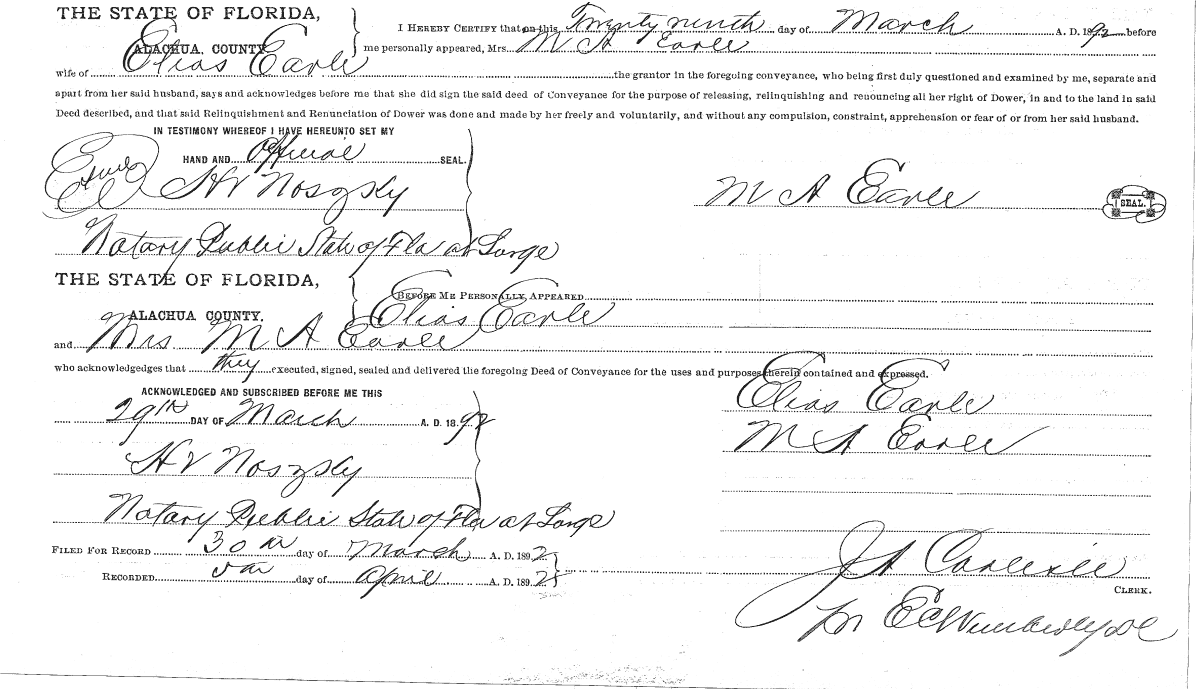 THE STATE OF FLORIDA,
ALACHUA COUNTY
I HEREBY CERTIFY that on this Twenty ninth day of March A. D. 1892 before
me personally appeared, Mrs. M A Earle
wife of Elias Earle the grantor in the foregoing conveyance, who being first duly questioned and examined by me, separate and
apart from her said husband, says and acknowledges before me that she did sign the said deed of Conveyance for the purpose of releasing, relinquishing and renouncing all her right of Dower, in and to the land in said
Deed described, and that said Relinquishment and Renunciation of Dower was done and made by her freely and voluntarily, and without any compulsion, constraint, apprehension or fear of or from her said husband.
IN TESTIMONY WHEREOF I HAVE HEREUNTO SET MY
HAND AND Official SEAL.
H V
M A Earle SEAL.
Notary Public State of Fla at Large
THE STATE OF FLORIDA,
ALACHUA COUNTY.
BEFORE ME PERSONALLY APPEARED
Elias Earle
and Mrs M A Earle
who acknowledgeges that they executed, signed, sealed and delivered the foregoing Deed of Conveyance for the uses and purposes therein contained and expressed.
ACKNOWLEDGED AND SUBSCRIBED BEFORE ME THIS
29th DAY OF March A. D. 1892
Elias Earle
M A Earle
H V
Notary Public State of Fla at Large
FILED FOR RECORD 30th day of March A. D. 1892
RECORDED day of April A. D. 1892
J A Carlisle
CLERK.
E C Wimberly DC